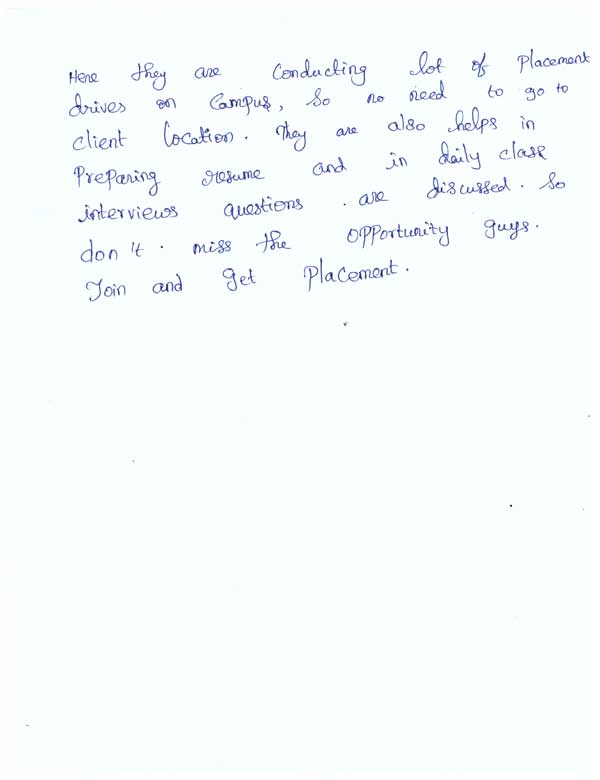 Here they are conducting lot of placement
drives on campus, so no need to go to
client location. They are also helps in
preparing resume and in daily class
interviews questions . are discussed. So
don't . miss the opportunity guys.
Join and get placement.